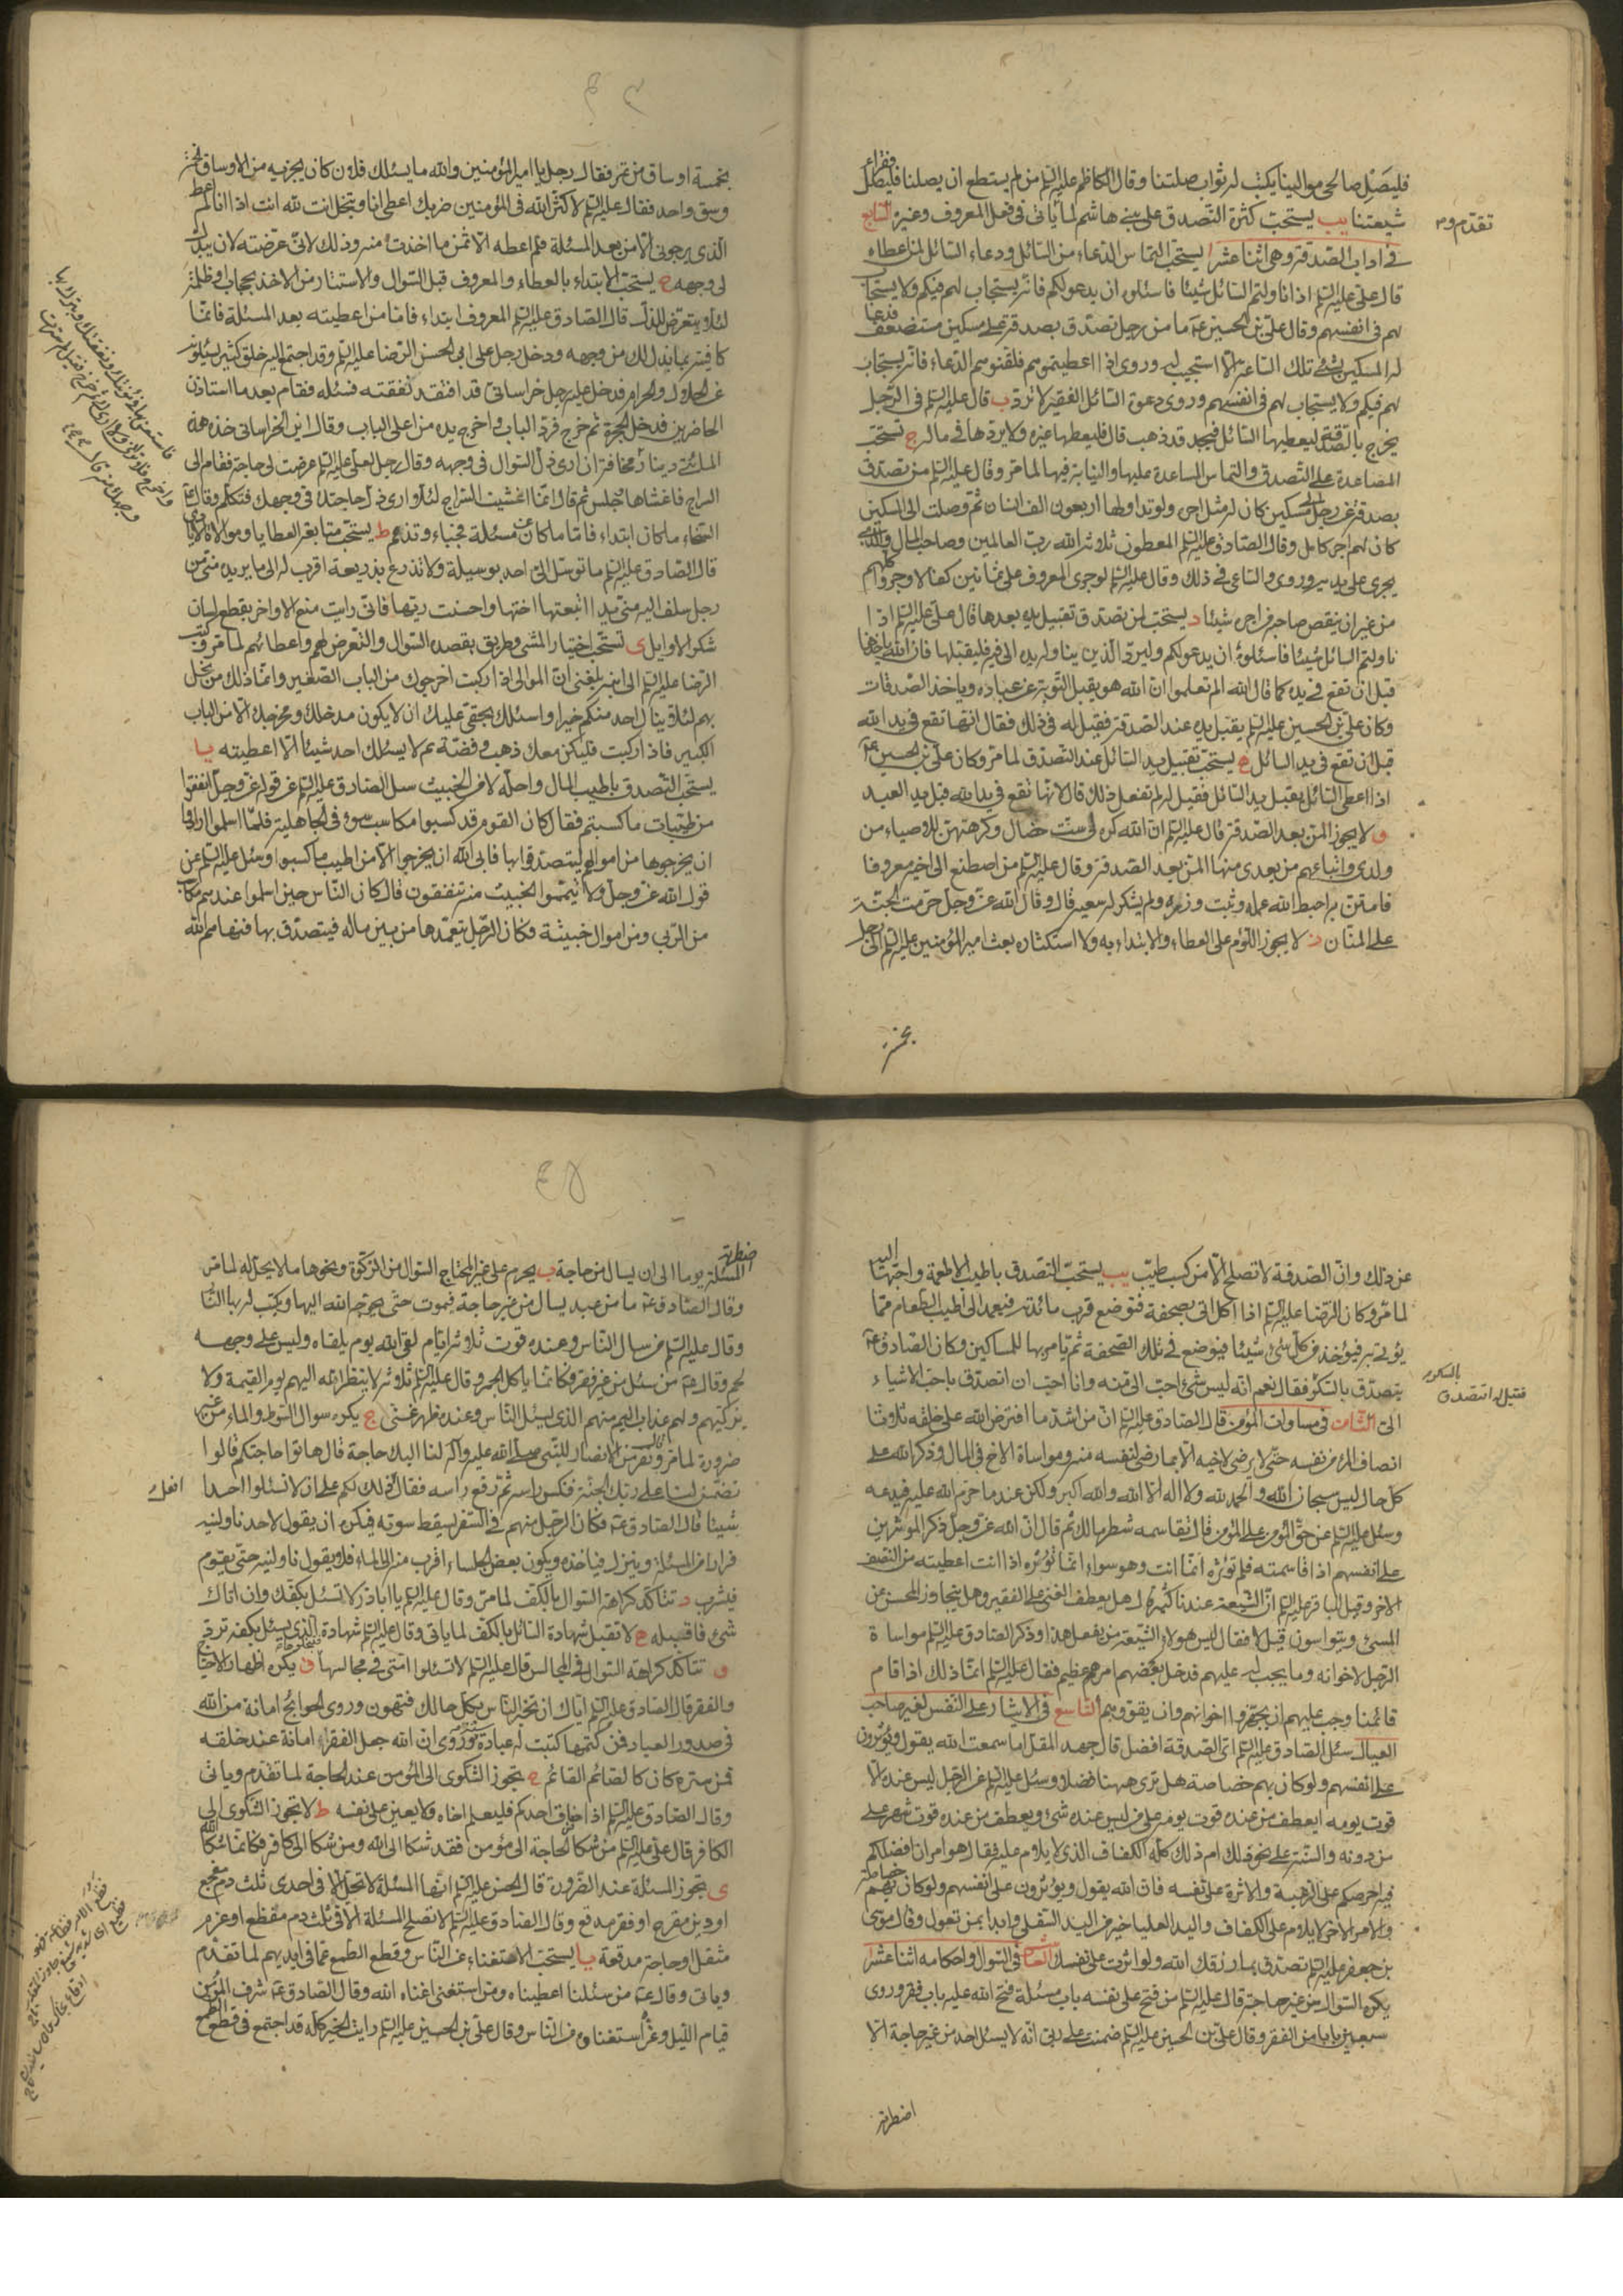 فليصل صالحى موالينا يكتب له ثواب صلتنا وقال الكاظم عليه السلم من لم يستطع ان يصلنا فليصل فقراء
شيعتنا يب يستحب كثرة التصدق على بنى هاشم لما ياتى فى فعل المعروف وغيره السابع
تقدم و
فى اداب الصدقة وهى اثنا عشر ا يستحب التماس الدعاء من السائل ودعاء السائل لمن اعطاه
قال على عليه السلم اذا ناولتم السائل شيئا فاسئلوه ان يدعو لكم فانه يستجاب لهم فيكم ولا يستجاب
لهم فى انفسهم وقال على بن الحسين ع ما من رجل تصدق بصدقة على مسكين مستضعف فدعا
له المسكين بشئ تلك الساعة الا استجيب له وروى اذا اعطيتموهم فلقنوهم الدعاء فانه يستجاب
لهم فيكم ولا يستجاب لهم فى انفسهم وروى دعوة السائل الفقير لا ترد ب قال عليه السلم فى الرجل
يخرج بالصدقة ليعطيها السائل فيجد قد ذهب قال فليعطها غيره ولا يردها فى ماله ج تستحب
المساعدة على التصدق والتماس المساعدة عليها والنيابة فيها لما مر وقال عليه السلم من تصدق
بصدقة عن رجل الى مسكين كان له مثل اجره ولو تداولها اربعون الف انسان ثم وصلت الى المسكين
كان لهم اجر كامل وقال الصادق عليه السلم المعطون ثلاثة الله رب العالمين وصاحب المال والذى
يجرى على يديه وروى والساعى فى ذلك وقال عليه السلم لو جرى المعروف على ثمانين كفا لاوجروا كلهم
من غير ان ينقص صاحبه من اجره شيئا د يستحب لمن تصدق تقبيل يده بعدها قال على عليه السلم اذا
ناولتم السائل شيئا فاسئلوه ان يدعو لكم وليرد الذى يناوله يده الى فيه فليقبلها فان الله ياخذها
قبل ان تقع فى يده كما قال الله الم تعلموا ان الله هو يقبل التوبة عن عباده وياخذ الصدقات
وكان على بن الحسين عليه السلم يقبل يده عند الصدقة فقيل له فى ذلك فقال انها تقع فى يد الله
قبل ان تقع فى يد السائل ه يستحب تقبيل يد السائل عند التصدق لما مر وكان على بن الحسين ع
اذا اعطى السائل يقبل يد السائل فقيل له لم تفعل ذلك قال لانها تقع فى يد الله قبل يد العبد
و لا يجوز المن بعد الصدقة قال عليه السلم ان الله كره لى ست خصال وكرهتهن للاوصياء من
ولدى واتباعهم من بعدى منها المن بعد الصدقة وقال عليه السلم من اصطنع الى اخيه معروفا
فامتن به احبط الله عمله وثبت وزره ولم يشكر له سعيه قال وقال الله عز وجل حرمت الجنة
على المنان ز لا يجوز اللوم على العطاء والابتداء به ولا استكثاره بعث امير المؤمنين عليه السلم الى رجل
بخمسة
بخمسة اوساق من تمر فقال رجل يا امير المؤمنين والله ما يسئلك فلان كان يجزيه من الاوساق الخمسة
وسق واحد فقال عليه السلم لا كثر الله فى المؤمنين ضربك اعطى انا وتبخل انت لله انت اذا انا لم اعط
الذى يرجونى الا من بعد المسئلة ثم اعطه الا ثمن ما اخذت منه وذلك لانى عرضته لان يبذل
لى وجهه ح يستحب الابتداء بالعطاء والمعروف قبل السوال والاستتار من الاخذ بحجاب او ظلمة
لئلا يتعرض للذل قال الصادق عليه السلم المعروف ابتداء فاما من اعطيته بعد المسئلة فانما
كافيته بما بذل لك من وجهه ودخل رجل على ابى الحسن الرضا عليه السلم وقد اجتمع اليه خلق كثير يسئلونه
عن الحلال والحرام فدخل عليه رجل خراسانى قد افتقد نفقته فسئله فقام بعد ما استاذن
الحاضرين فدخل الحجرة ثم خرج فرد الباب واخرج يده من اعلى الباب وقال اين الخراسانى خذ هذه
المائتى دينار مخافة ان ارى ذل السوال فى وجهه وقال رجل لعلى عليه السلم عرضت لى حاجة فقام الى
السراج فاغشاها وجلس ثم قال انما اغشيت السراج لئلا ارى ذل حاجتك فى وجهك فتكلم وقال ع
السخاء ما كان ابتداء فاما ما كان عن مسئلة فحياء وتذمم ط يستحب متابعة العطايا وموالاة الايادى
قال الصادق عليه السلم ما توسل الى احد بوسيلة ولا تذرع بذريعة اقرب له الى ما يريده منى من
رجل سلف اليه منى يد اتبعتها اختها واحسنت ربها فانى رايت منع الاواخر يقطع لسان
شكر الاوايل ى تستحب اختيار المشى وطريق يقصده السوال والتعرض لهم واعطائهم لما مر وكتب
الرضا عليه السلم الى ابنه بلغنى ان الموالى اذا ركبت اخرجوك من الباب الصغير وانما ذلك من بخل
بهم لئلا ينال احد منك خيرا واسئلك بحقى عليك ان لا يكون مدخلك ومخرجك الا من الباب
الكبير فاذا ركبت فليكن معك ذهب وفضة ثم لا يسئلك احد شيئا الا اعطيته يا
يستحب التصدق باطيب المال واحله لا من الخبيث سئل الصادق عليه السلم عن قوله عز وجل انفقوا
من طيبات ما كسبتم فقال كان القوم قد كسبوا مكاسب سوء فى الجاهلية فلما اسلموا ارادوا
ان يخرجوها من اموالهم ليتصدقوا بها فابى الله ان يخرجوا الا من اطيب ما كسبوا وسئل عليه السلم عن
قول الله عز وجل ولا تيمموا الخبيث منه تنفقون قال كان الناس حين اسلموا عندهم مكاسب
من الربى ومن اموال خبيثة وكان الرجل يتعمدها من بين ماله فيتصدق بها فنهاهم الله
عن ذلك وان الصدقة لا تصلح الا من كسب طيب يب يستحب التصدق باطيب الاطعمة واحبها اليه
لما مر وكان الرضا عليه السلم اذا اكل اتى بصحفة فتوضع قرب مائدته فيعمد الى اطيب الطعام مما
يؤتى به فيؤخذ من كل شئ شيئا فيوضع فى تلك الصحفة ثم يامر بها للمساكين وكان الصادق ع
يتصدق بالسكر فقال نعم انه ليس شئ احب الى منه وانا احب ان اتصدق باحب الاشياء
فقيل له اتتصدق بالسكر
الى الثامن فى مساوات المؤمن قال الصادق عليه السلم ان من اشد ما افترض الله على خلقه ثلاثا
انصاف المرء من نفسه حتى لا يرضى لاخيه الا بما رضى لنفسه منه ومواساة الاخ فى المال وذكر الله على
كل حال ليس سبحان الله والحمد لله ولا اله الا الله والله اكبر ولكن عند ما حرم الله عليه فيدعه
وسئل عليه السلم عن حق المؤمن على المؤمن قال تقاسمه شطر مالك ثم قال ان الله عز وجل ذكر الموثرين
على انفسهم اذا قاسمته فلم تؤثره انما انت وهو سواء انما تؤثره اذا انت اعطيته من النصف
الاخر وقيل للباقر عليه السلم ان الشيعة عندنا كثير قال هل يعطف الغنى على الفقير وهل يتجاوز المحسن عن
المسئ ويتواسون قيل لا فقال ليس هولاء الشيعة من يفعل هذا وذكر الصادق عليه السلم مواساة
الرجل لاخوانه وما يجب له عليهم فدخل بعضهم امر عظيم فقال عليه السلم انما ذلك اذا قام
قائمنا وجب عليهم ان يجهزوا اخوانهم وان يقووهم التاسع فى الايثار على النفس لغير صاحب
العيال سئل الصادق عليه السلم اى الصدقة افضل قال جهد المقل اما سمعت الله يقول ويؤثرون
على انفسهم ولو كان بهم خصاصة هل ترى ههنا فضلا وسئل عليه السلم عن الرجل ليس عنده الا
قوت يومه ايعطف من عنده قوت يومه على من ليس عنده شئ ويعطف من عنده قوت شهر على
من دونه والسنة على نحو ذلك ام ذلك كله الكفاف الذى لا يلام عليه فقال هو امران افضلكم
فيه احرصكم على الرغبة والاثرة على نفسه فان الله يقول ويؤثرون على انفسهم ولو كان بهم خصاصة
والامر الاخر لا يلام على الكفاف واليد العليا خير من اليد السفلى وابدا بمن تعول وقال موسى
بن جعفر عليه السلم تصدق بما رزقك الله ولو اثرت على نفسك العاشر فى السوال واحكامه اثنا عشر ا
يكره السوال من غير حاجة قال عليه السلم من فتح على نفسه باب مسئلة فتح الله عليه باب فقر وروى
سبعين بابا من الفقر وقال على بن الحسين عليه السلم ضمنت على ربى انه لا يسئل احد من غير حاجة الا
اضطرته
اضطرته المسئلة يوما الى ان يسال من حاجة ب يحرم على غير المحتاج السوال من الزكوة ونحوها ما لا يحل له لما مر
وقال الصادق ع ما من عبد يسال من غير حاجة فيموت حتى يحوجه الله اليها ويكتب له بها النار
وقال عليه السلم من سال الناس وعنده قوت ثلاثة ايام لقى الله يوم يلقاه وليس على وجهه
لحم وقال ع من سئل من غير فقر فكانما ياكل الجمر وقال عليه السلم ثلاثة لا ينظر الله اليهم يوم القيمة ولا
يزكيهم ولهم عذاب اليم منهم الذى يسئل الناس وعنده ظهر غنى ج يكره سوال السوط والماء من غير
ضرورة لما مر وقالت الانصار للنبى صلى الله عليه وآله لنا اليك حاجة قال هاتوا حاجتكم قالوا
تضمن لنا على ربك الجنة فنكس راسه ثم رفع راسه فقال ذلك لكم على ان لا تسئلوا احدا
افعل
شيئا قال الصادق ع فكان الرجل منهم فى السفر يسقط سوته فيكره ان يقول لاحد ناولنيه
فرارا من المسئلة وينزل فياخذه ويكون بعض الجلساء اقرب منه الى الماء فلا يقول ناولنيه حتى يقوم
فيشرب د تتاكد كراهة السوال بالكف لما مر وقال عليه السلم يا اباذر لا تسئل بكفك وان اتاك
شئ فاقبله ه لا تقبل شهادة السائل بالكف لما ياتى وقال عليه السلم شهادة الذى يسئل بكفه ترد
و تتاكد كراهة السوال فى المجالس قال عليه السلم لا تسئلوا امتى فى مجالسها ز يكره اظهار الاحتياج
والفقر قال الصادق عليه السلم اياك ان تخبر الناس بكل حالك فتهون وروى الحوائج امانة من الله
فى صدور العباد فمن كتمها كتبت له عبادة وروى ان الله جعل الفقراء امانة عند خلقه
فمن ستره كان كالصائم القائم ح تجوز الشكوى الى المؤمن عند الحاجة لما تقدم وياتى
وقال الصادق عليه السلم اذا ضاق احدكم فليعلم اخاه ولا يعين على نفسه ط لا تجوز الشكوى الى
الكافر قال على عليه السلم من شكا الحاجة الى مؤمن فقد شكا الى الله ومن شكا الى كافر فكانما شكا الله
ى تجوز المسئلة عند الضرورة قال الحسن عليه السلم انها المسئلة لا تحل الا فى احدى ثلث دم مفجع
او دين مقرح او فقر مدقع وقال الصادق عليه السلم لا تصلح المسئلة الا فى ثلث دم مقطع او غرم
مثقل او حاجة مدقعة يا يستحب الاستغناء عن الناس وقطع الطمع عما فى ايديهم لما تقدم
وياتى وقال ع من سئلنا اعطيناه ومن استغنى اغناه الله وقال الصادق ع شرف المؤمن
قيام الليل وعزه استغناؤه عن الناس وقال على بن الحسين عليه السلم رايت الخير كله قد اجتمع فى قطع الطمع